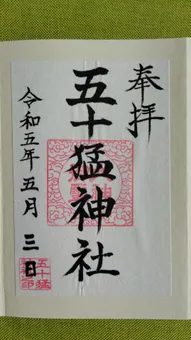 奉拝
五十猛神社
令和五年五月三日